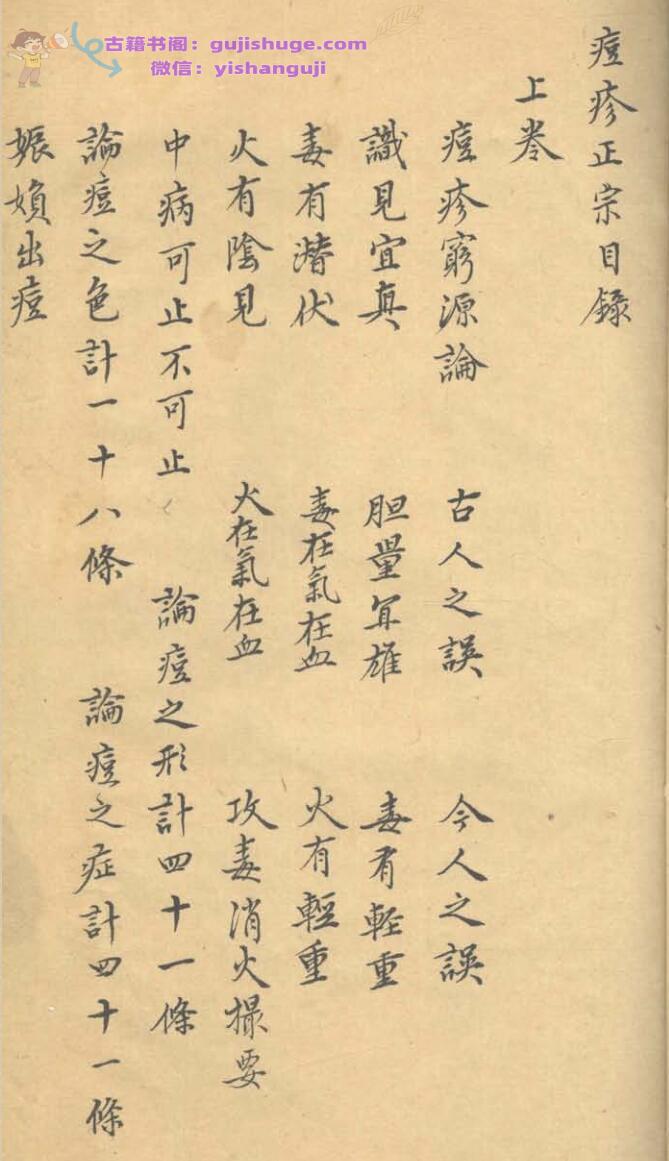 古籍书阁：gujishuge.com
微信：yishanguji
痘疹正宗目錄
上卷
痘疹窮源論　古人之誤　今人之誤
識見宜真　胆量宜雄　毒有輕重
毒有潜伏　毒在氣在血　火有輕重
火有陰見　火在氣在血　攻毒消火撮要
中病可止不可止　論痘之形計四十一條
論痘之色計一十八條　論痘之症計四十一條
娠婦出痘